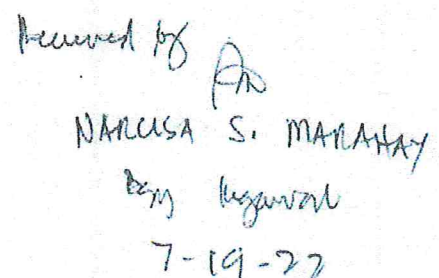 Received by
NARCISA S. MARAHAY
Brgy Kagawad
7-19-22